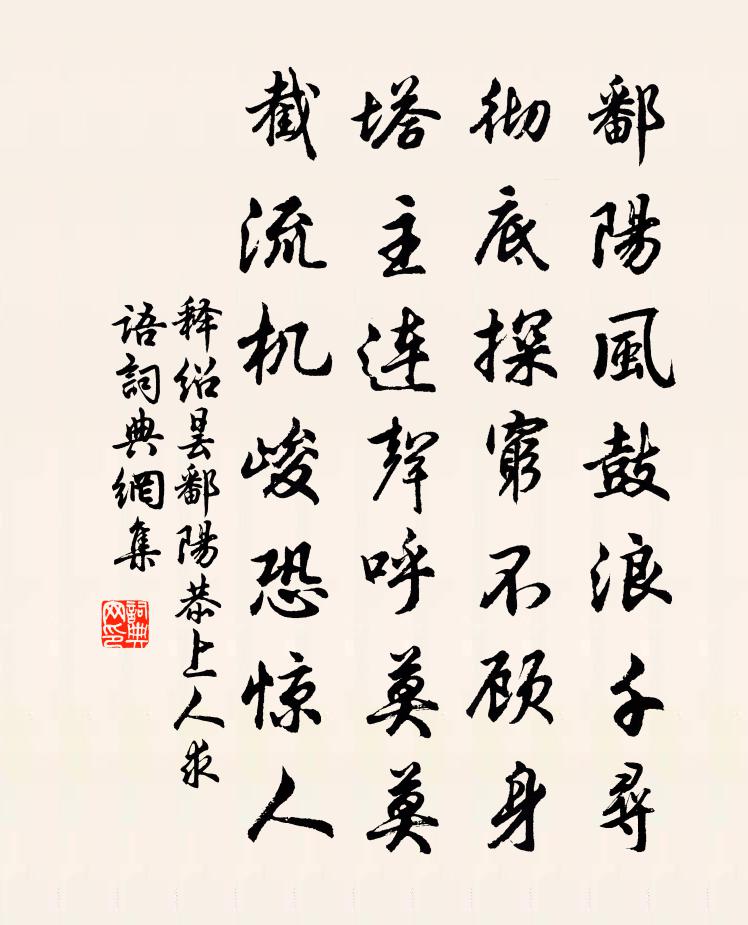 鄱陽風鼓浪千尋
彻底探窮不顾身
塔主連聲呼莫莫
截流机峻恐惊人
释绍昙鄱陽恭上人求
語詞典網集
詞典网印